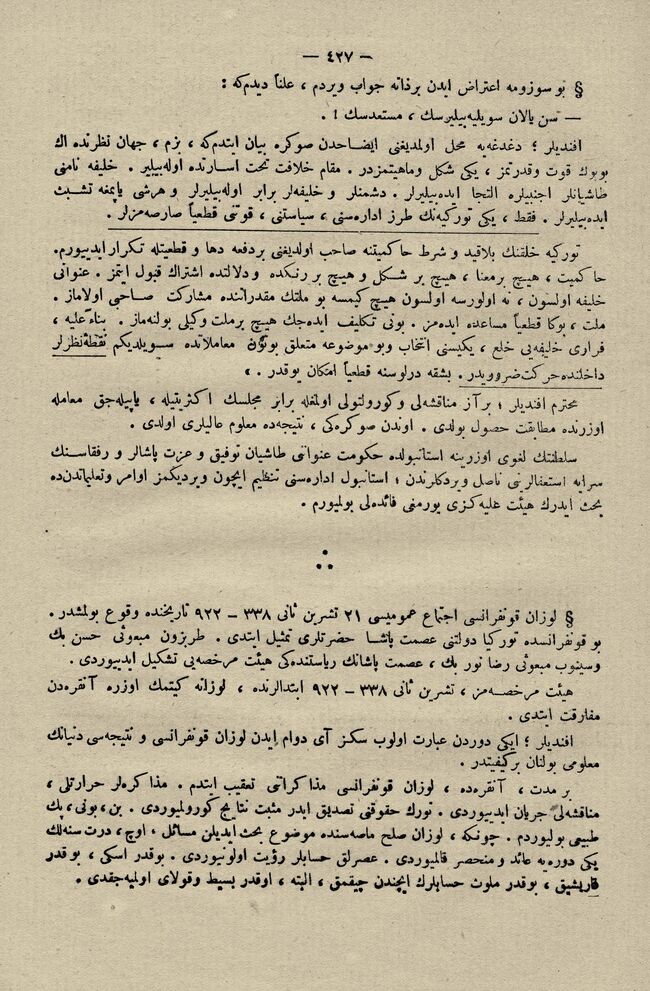 — ٤٢٧ —
§ بو سوزومه اعتراض ایدن برذاته جواب ویردم ، علناً دیدم‌که :
— سن یالان سویلیه‌بیلیرسك ، مستعدسك ! .
افندیلر ؛ دغدغه‌یه محل اولمدیغنی ایضاحدن صوکره بیان ایتدم‌که ، بزم ، جهان نظرنده اك
بویوك قوت وقدرتمز ، یکی شکل وماهیتمزدر . مقام خلافت تحت اسارنده اوله‌بیلیر . خلیفه نامنی
طاشیانلر اجنبیلره التجا ایده‌بیلیرلر . دشمنلر و خلیفه‌لر برابر اوله‌بیلیرلر و هرشی یاپمغه تشبث
ایده‌بیلیرلر . فقط ، یکی تورکیه‌نك طرز اداره‌سنی ، سیاستنی ، قوتنی قطعیاً صارصه‌مزلر .
تورکیه خلقنك بلاقید و شرط حاکمیتنه صاحب اولدیغنی بردفعه دها و قطعیتله تکرار ایدییورم.
حاکمیت ، هیچ برمعنا ، هیچ بر شکل و هیچ بر رنکده و دلالتده اشتراك قبول ایتمز . عنوانی
خلیفه اولسون ، نه اولورسه اولسون هیچ کیمسه بو ملتك مقدراتنده مشارکت صاحبی اولاماز .
ملت ، بوکا قطعیاً مساعده ایده‌مز . بونی تکلیف ایده‌جك هیچ برملت وکیلی بولنه‌ماز . بناءً علیه ،
فراری خلیفه‌یی خلع ، یکیسنی انتخاب وبو موضوعه متعلق بوتون معاملاتده سویلدیکم نقطهٔ نظرلر
داخلنده حرکت ضروریدر . بشقه درلوسنه قطعیاً امکان یوقدر . »
محترم افندیلر ؛ برآز مناقشه‌لی وکورولتولی اولمغله برابر مجلسك اکثریتیله ، یاپیله‌جق معامله
اوزرنده مطابقت حصول بولدی . اوندن صوکره‌کی ، نتیجه‌ده معلوم عالیلری اولدی .
سلطنتك لغوی اوزرینه استانبولده حکومت عنوانی طاشیان توفیق و عزت پاشالر و رفقاسنك
سرایه استعفالرینی ناصل ویردکلرندن ؛ استانبول اداره‌سنی تنظیم ایچون ویردیکمز اوامر وتعلیماتدن‌ده
بحث ایدرك هیئت علیه‌کزی یورمغی فائده‌لی بولمیورم .
§ لوزان قونفرانسی اجتماع عمومیسی ٢١ تشرین ثانی ٣٣٨ – ٩٢٢ تاریخنده وقوع بولمشدر .
بو قونفرانسده تورکیا دولتنی عصمت پاشا حضرتلری تمثیل ایتدی . طربزون مبعوثی حسن بك
وسینوب مبعوثی رضا نور بك ، عصمت پاشانك ریاستنده‌کی هیئت مرخصه‌یی تشکیل ایدییوردی .
هیئت مرخصه‌مز ، تشرین ثانی ٣٣٨ – ٩٢٢ ابتدالرنده ، لوزانه کیتمك اوزره آنقره‌دن
مفارقت ایتدی .
افندیلر ؛ ایکی دوردن عبارت اولوب سکز آی دوام ایدن لوزان قونفرانسی و نتیجه‌سی دنیانك
معلومی بولنان برکیفیتدر .
بر مدت ، آنقره‌ده ، لوزان قونفرانسی مذاکراتی تعقیب ایتدم . مذاکره‌لر حرارتلی ،
مناقشه‌لی جریان ایدییوردی . تورك حقوقنی تصدیق ایدر مثبت نتایج کورولمیوردی . بن ، بونی ، پك
طبیعی بولیوردم . چونکه ، لوزان صلح ماصه‌سنده موضوع بحث ایدیلن مسائل ، اوچ ، درت سنه‌لك
یکی دوره‌یه عائد و منحصر قالمیوردی . عصرلق حسابلر رؤیت اولونیوردی . بوقدر اسکی ، بوقدر
قاریشیق ، بوقدر ملوث حسابلرك ایچندن چیقمق ، البته ، اوقدر بسیط وقولای اولمیه‌جقدی .